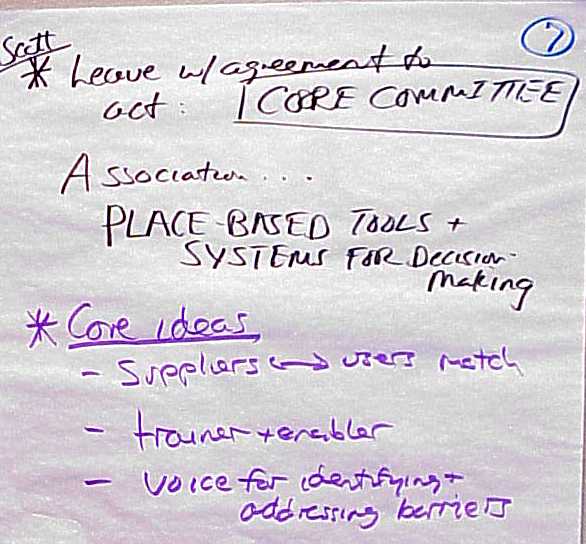 Scott
7
* Leave w/ agreement to
act: CORE COMMITTEE
Association...
PLACE-BASED TOOLS +
SYSTEMS FOR Decision-
Making
* Core ideas
- Suppliers <-> users match
- trainer + enabler
- voice for identifying +
addressing barriers